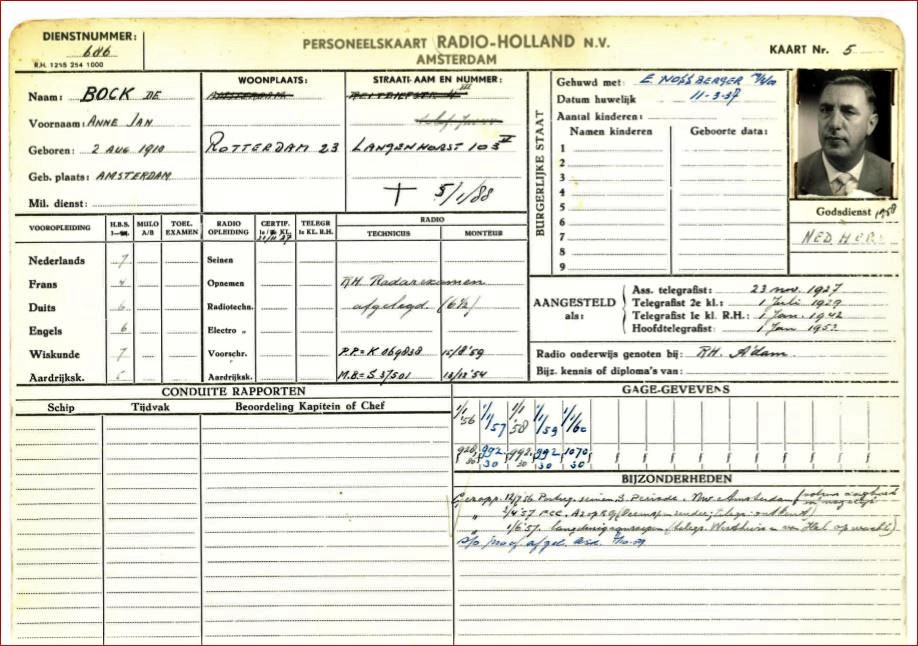 DIENSTNUMMER:
686
R.H. 1215 254 1000
PERSONEELSKAART RADIO-HOLLAND N.V.
AMSTERDAM
KAART Nr. 5
Naam: BOCK DE
Voornaam: ANNE JAN
Geboren: 2 AUG 1910
Geb. plaats: AMSTERDAM
Mil. dienst:
WOONPLAATS:
AMSTERDAM
ROTTERDAM 23
STRAATNAAM EN NUMMER:
LANGENHORST 103
5/1/88
BURGERLIJKE STAAT
Gehuwd met: E NOSSBERGER
Datum huwelijk 11-3-37
Aantal kinderen:
Namen kinderen Geboorte data:
1
2
3
4
5
6
7
8
9
Godsdienst 1958
NED HERV
VOOROPLEIDING H.B.S. MULO A/B TOEL. EXAMEN RADIO OPLEIDING CERTIF. KL. TELEGR 1e KL. R.H. RADIO
TECHNICUS MONTEUR
Nederlands 7 Seinen
Frans 4 Opnemen RH. Radarexamen
Duits 6 Radiotechn. afgelegd. (6½)
Engels 6 Electro "
Wiskunde 7 Voorschr. P.P.= K 069838 15/8'59
Aardrijksk. 5 Aardrijksk. M.B.= S 37501 13/12'54
AANGESTELD als:
Ass. telegrafist: 23 nov. 1927
Telegrafist 2e kl.: 1 Juli 1929
Telegrafist 1e kl. R.H.: 1 Jan. 1942
Hoofdtelegrafist: 1 Jan 1952
Radio onderwijs genoten bij: RH. A'dam.
Bijz. kennis of diploma's van:
CONDUITE RAPPORTEN
Schip Tijdvak Beoordeling Kapitein of Chef
GAGE-GEVEVENS
1/1 56 1/1 57 1/1 58 1/1 59 1/1 60
928 30 992 30 992 30 992 30 1070 30
BIJZONDERHEDEN
Gerapp. 12/7'56 Nw Amsterdam
" 2/4'57 PCC.
" 1/6'57.